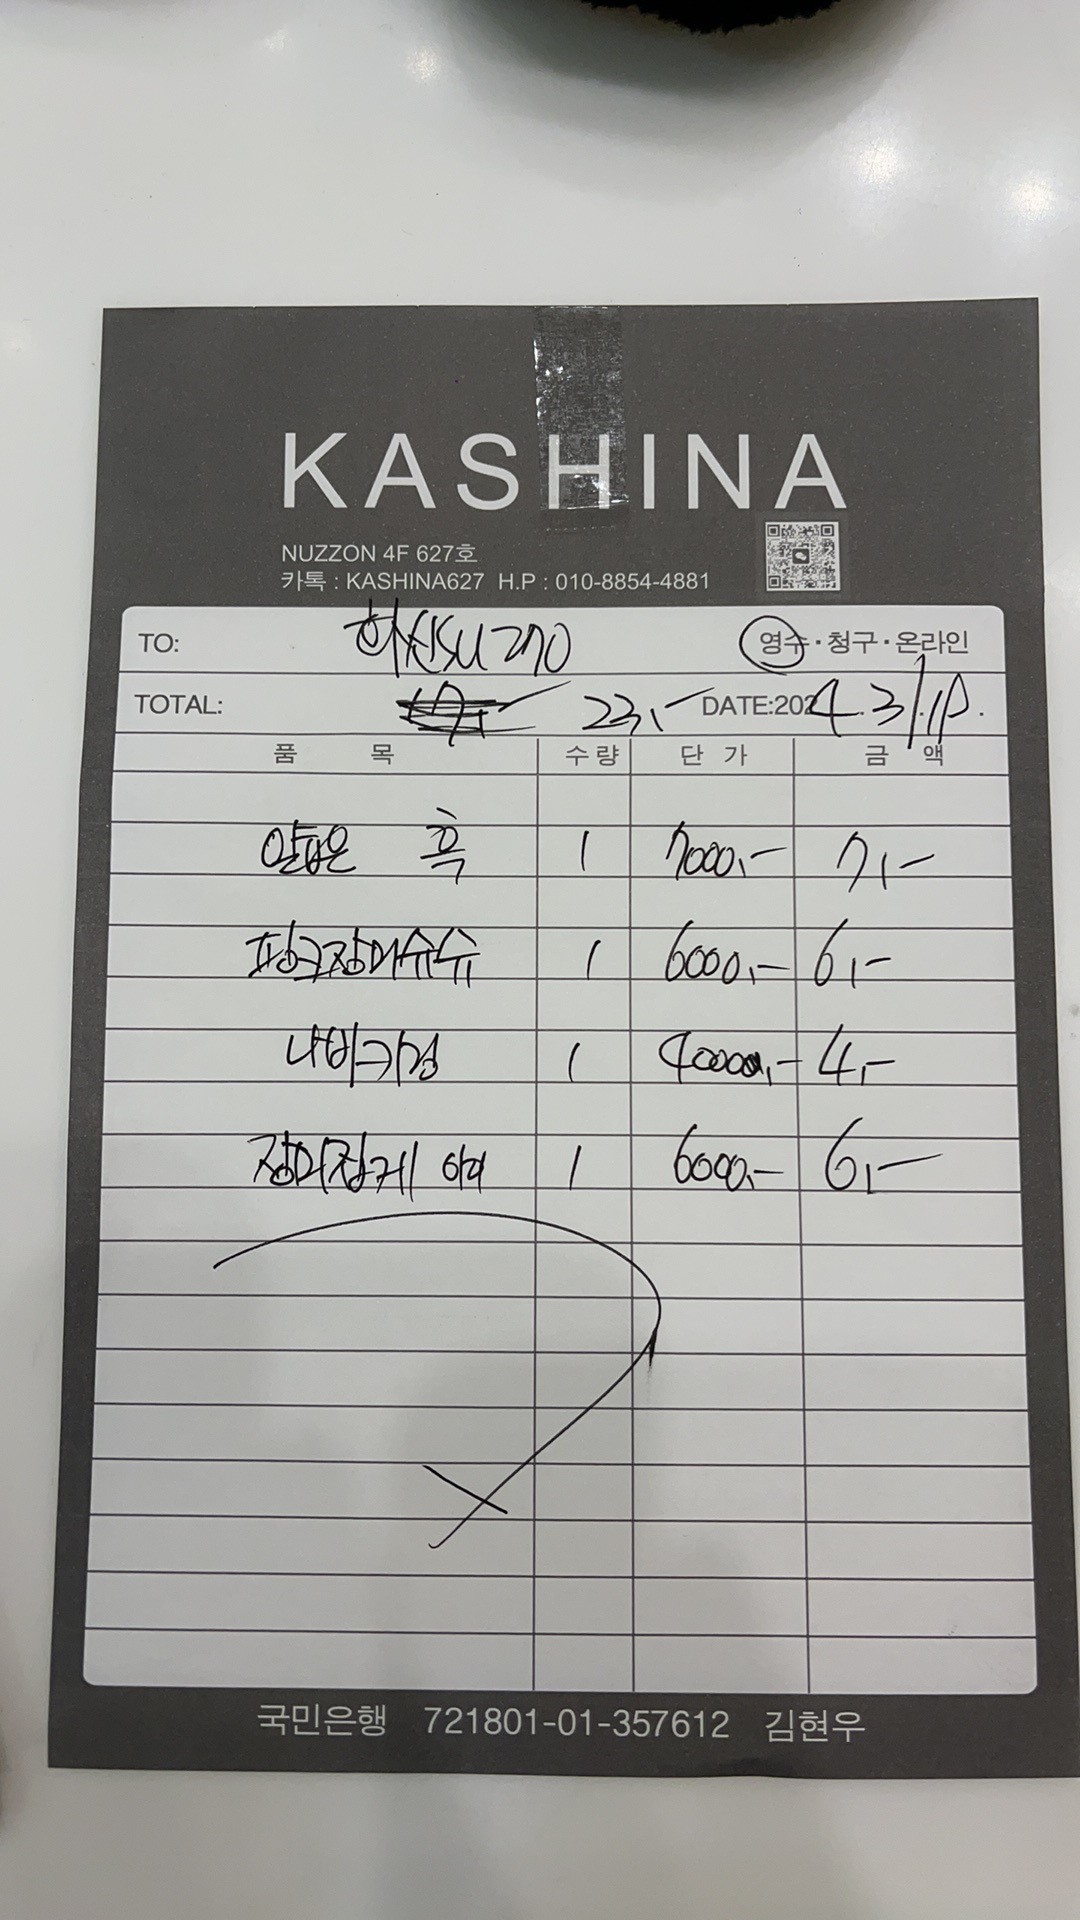 KASHINA
NUZZON 4F 627호
카톡 : KASHINA627 H.P : 010-8854-4881
TO: 영수·청구·온라인
TOTAL: 23,- DATE:2024.3/
품 목 수 량 단 가 금 액
얇은 흑 1 7000,- 7,-
핑크장미슈슈 1 6000,- 6,-
나비키링 1 4,-
장미집게 아이 1 6000,- 6,-
국민은행 721801-01-357612 김현우